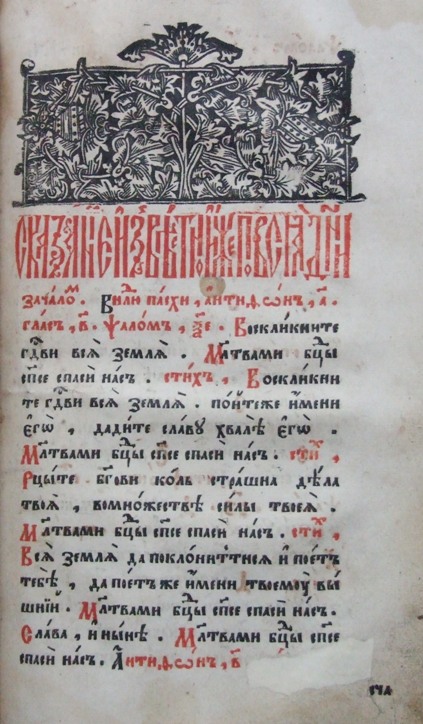 Сказанїе и҆звѣстно, и҆же повсѧ̀ дн҃и
зача́лом. Въ нл҃и па́схи, антиѳѡ́нъ, а҃.
гла́съ, в҃. ѱало́мъ, ѯ҃е. Воскли́кните
гд҃ви всѧ̀ землѧ̀. Мл҃твами бц҃ы
сп҃се спасѝ на́съ. сти́хъ, Воскли́кни
те гд҃ви всѧ̀ землѧ̀. по́йтеже и҆́мени
є҆гѡ̀, дади́те сла́ву хвалѣ̀ є҆гѡ̀.
Мл҃твами бц҃ы сп҃се спасѝ на́съ. сти́х,
Рцы́те бг҃ови ко́ль стра́шна дѣ́ла
твоѧ̀, вомно́жествѣ си́лы твоеѧ̀.
Мл҃твами бц҃ы сп҃се спасѝ на́съ. сти́х,
Всѧ̀ землѧ̀ да покло́ниттисѧ и҆ пое́тъ
тебѣ̀, да пое́тъ же и҆́мени твоемꙋ̀ вы́
шнїй. Мл҃твами бц҃ы сп҃се спасѝ на́съ.
Сла́ва, и҆ ны́нѣ. Мл҃твами бц҃ы сп҃се
спасѝ на́съ. Антиѳѡ́нъ, в҃
сча